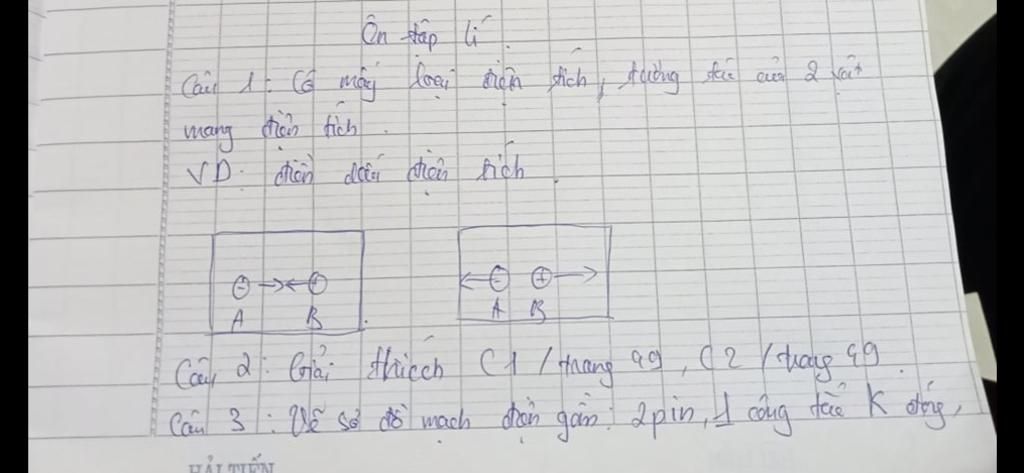 Ôn tập lí.
Câu 1: Có mấy loại điện tích, tương tác của 2 vật
mang điện tích.
VD: điền dấu điện tích.
A B
A B
Câu 2: Giải thích C1/trang 49, C2/trang 49.
Câu 3: Vẽ sơ đồ mạch điện gồm: 2 pin, 1 công tắc K đóng,
HẢI TIẾN